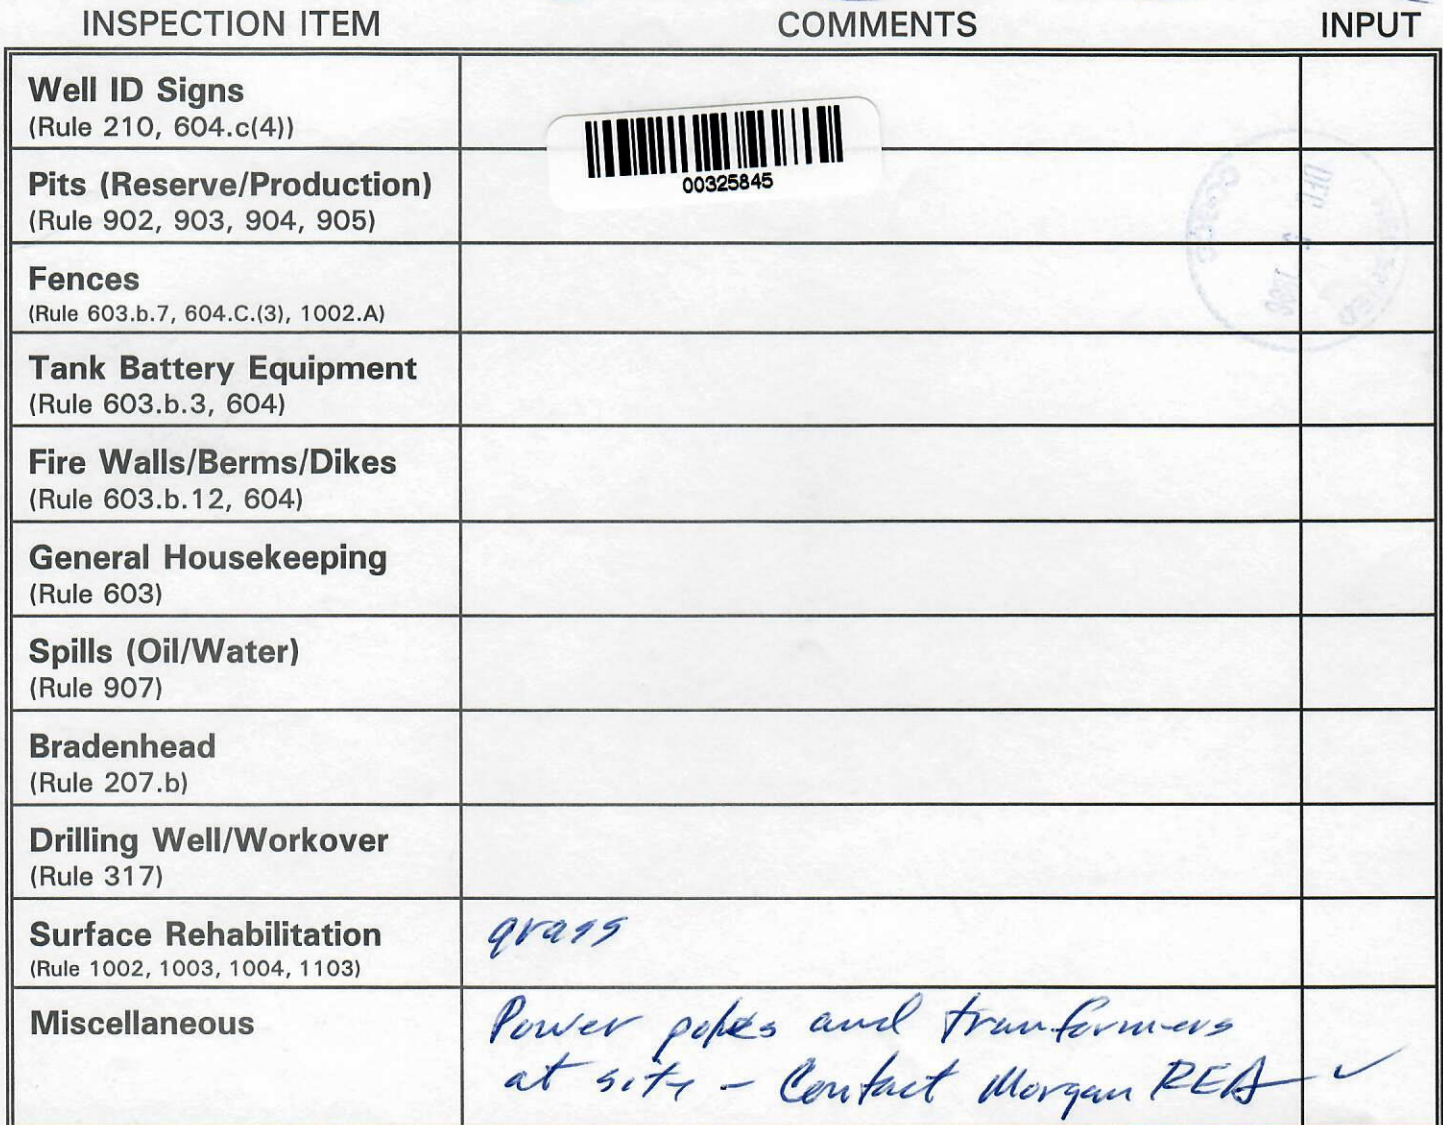 INSPECTION ITEM COMMENTS INPUT
Well ID Signs
(Rule 210, 604.c(4))
00325845
Pits (Reserve/Production)
(Rule 902, 903, 904, 905)
Fences
(Rule 603.b.7, 604.C.(3), 1002.A)
Tank Battery Equipment
(Rule 603.b.3, 604)
Fire Walls/Berms/Dikes
(Rule 603.b.12, 604)
General Housekeeping
(Rule 603)
Spills (Oil/Water)
(Rule 907)
Bradenhead
(Rule 207.b)
Drilling Well/Workover
(Rule 317)
Surface Rehabilitation grass
(Rule 1002, 1003, 1004, 1103)
Miscellaneous Power poles and tranformers
at site - Contact Morgan REA ✓